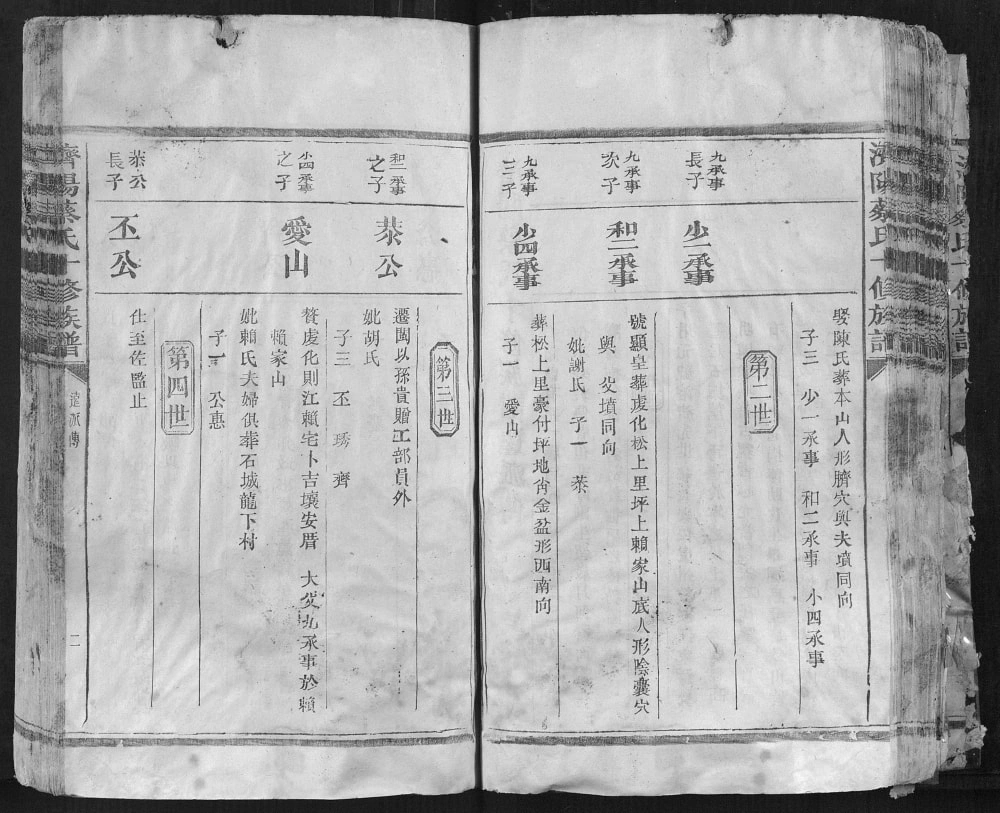 娶陳氏葬本山人形臍穴與夫墳同向
子三 少一承事 和二承事 小四承事
第二世
九承事
長子
少一承事
九承事
次子
和二承事
號顯皇葬虔化松上里坪上賴家山底人形陰囊穴
與父墳同向
妣謝氏 子一 恭
九承事
三子
少四承事
葬松上里豪付坪地肖金盆形西南向
子一 愛山
第三世
和二承事
之子
恭公
遷閩以孫貴贈工部員外
妣胡氏
子三 丕 琇 齊
少四承事
之子
愛山
贅虔化則江賴宅卜吉壤安厝 大父九承事於賴
賴家山
妣賴氏夫婦俱葬石城龍下村
子一 公惠
第四世
恭公
長子
丕公
仕至佐監止
濟陽蔡氏十修族譜
二